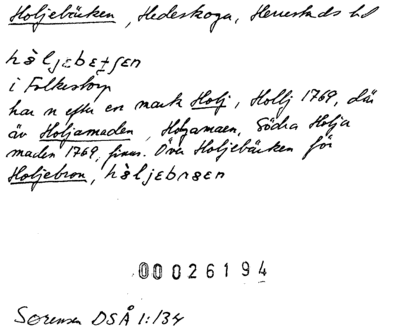 Holjebäcken, Hedeskoga, Herrestads hd
hòljɛbɛtʃɛn
i Folkestorp
har n efter en mark Holj, Hollj 1769, där
är Holjamaden, Holjamaen, Södra Holja
maden 1769, finns. Över Holjebäcken för
Holjebron, hòljɛbrɛn
00026194
Sørensen DSÅ 1:134